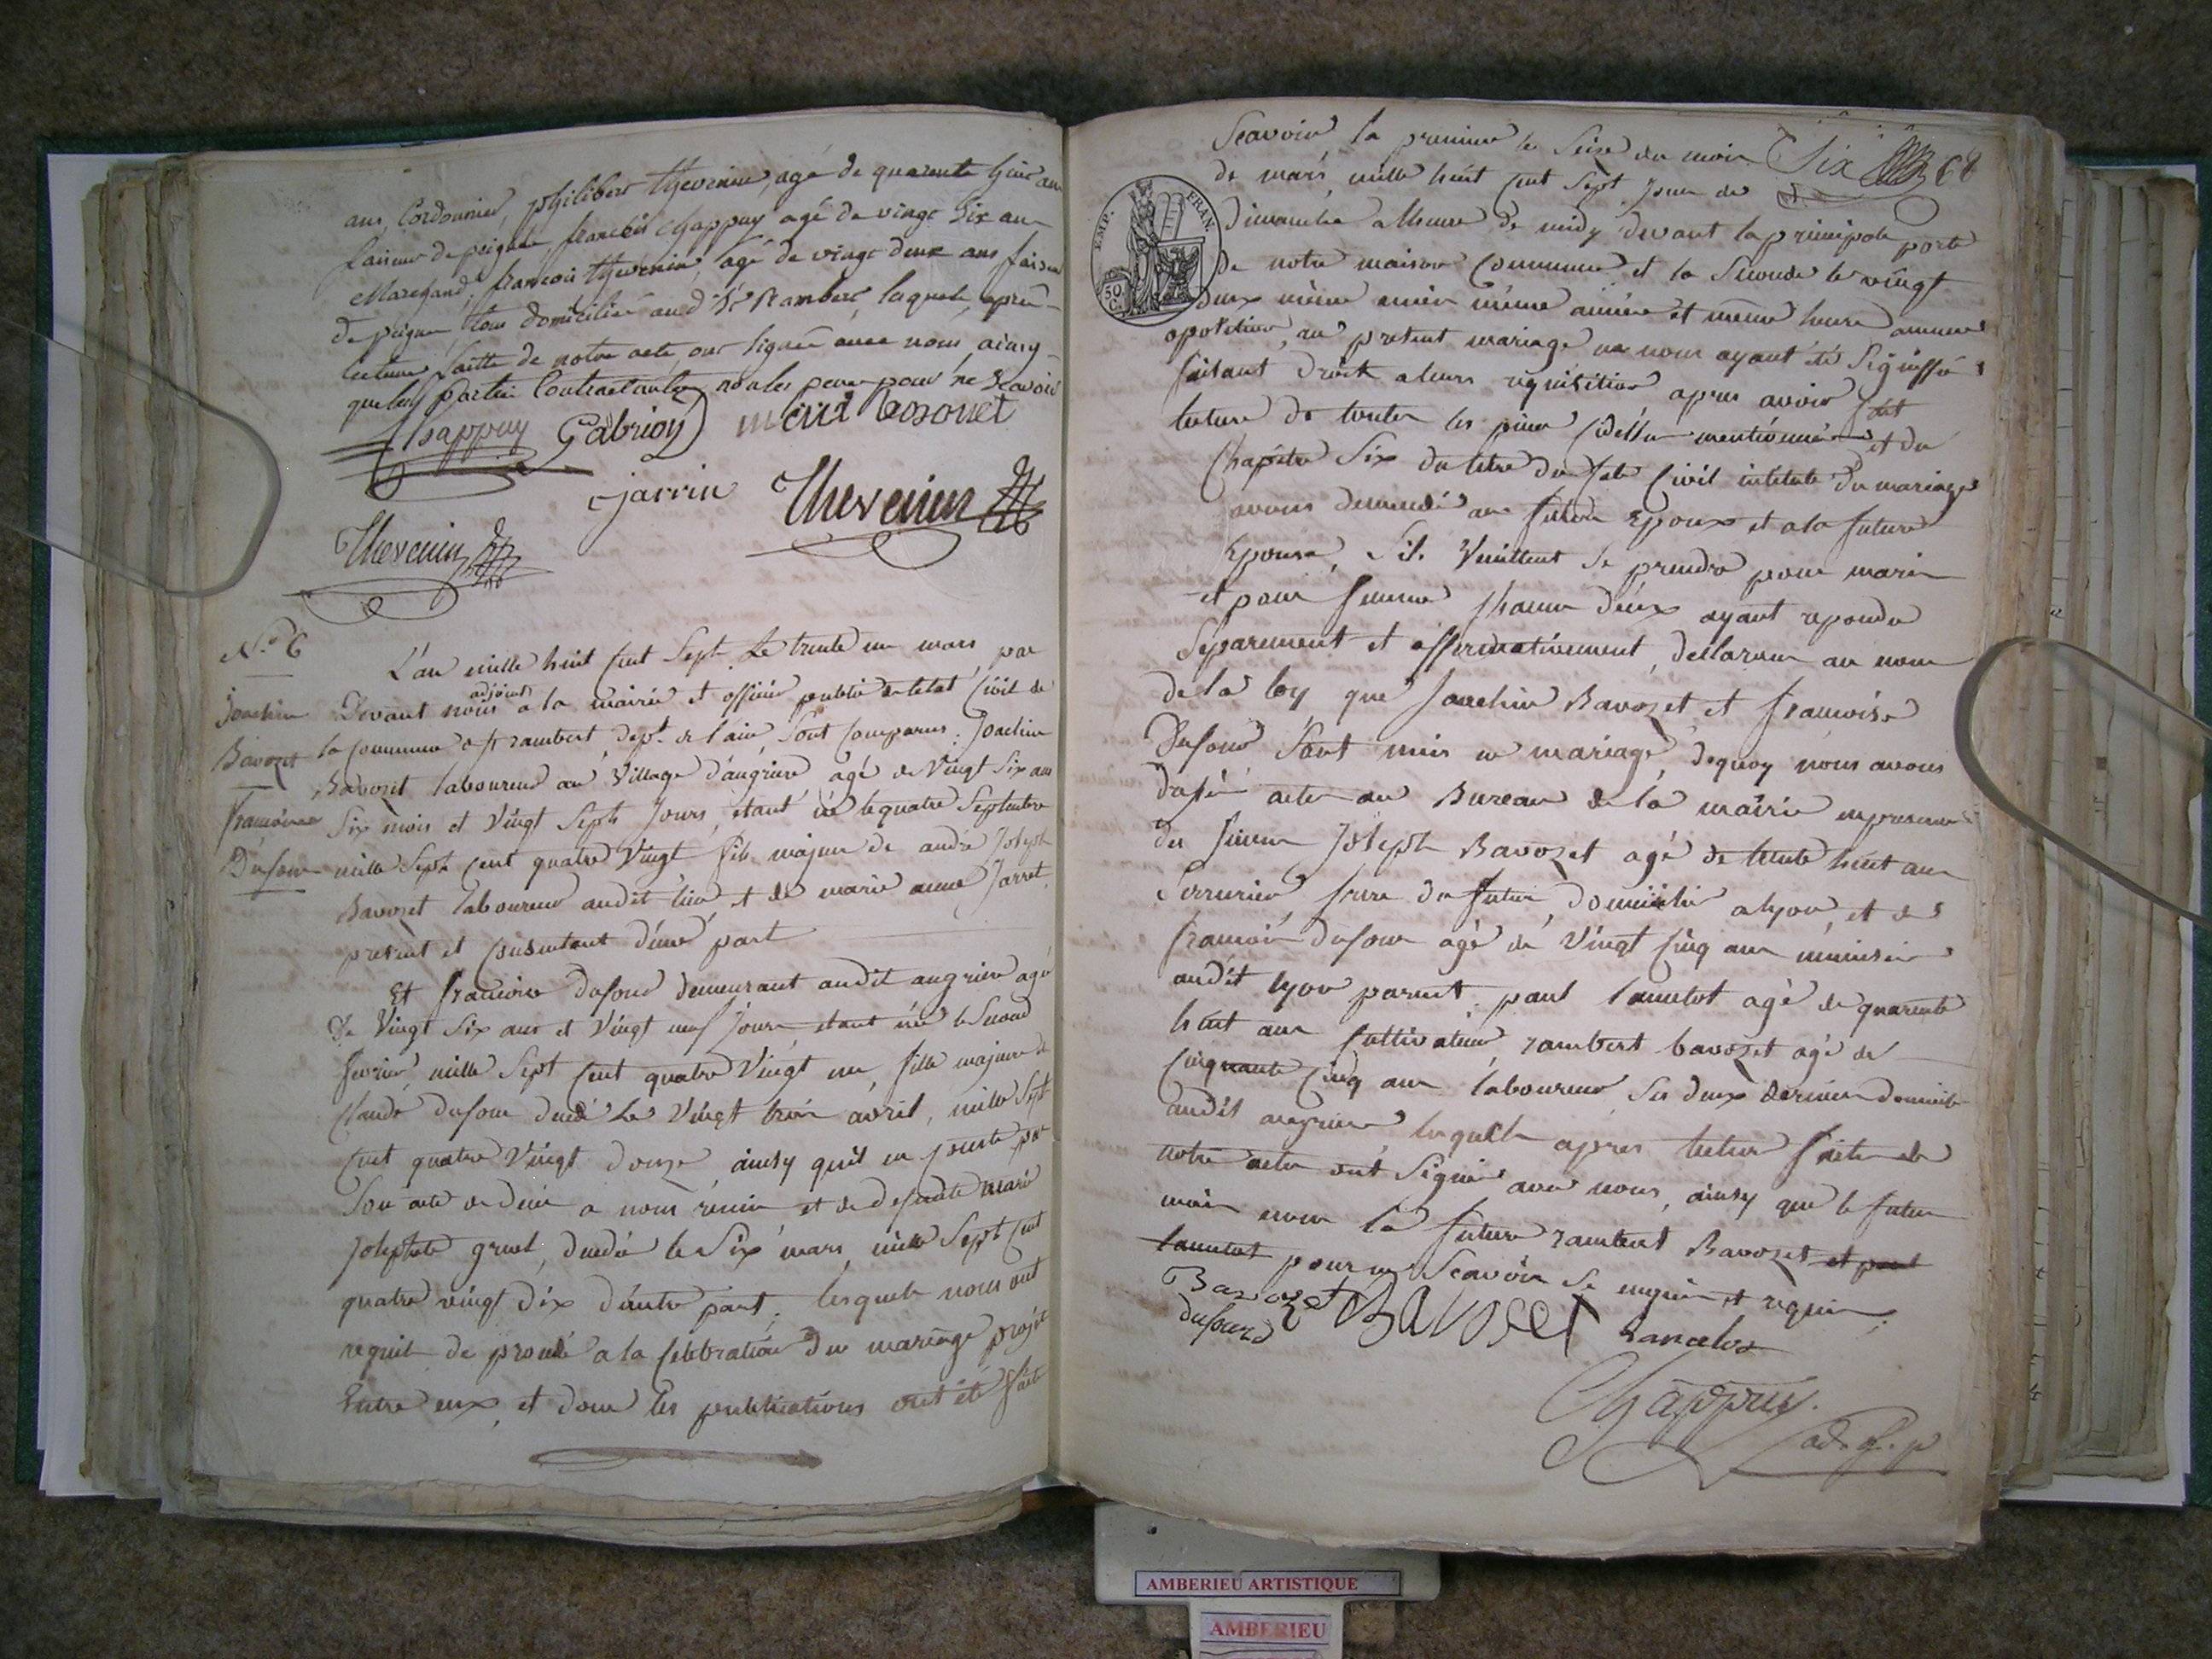 ans, Cordonnier, philibert thevenin, agé de quarente huit ans
faiseur de peignes, francois Chappuy agé de vingt six ans
Marchand, francois thevenin, agé de vingt deux ans faiseur
de peignes, tous domiciliés aud St Rambert, laquele, apres
lecture faitte de notre acte, ont signés avec nous, ainsy
que les parties Contractantes, non les peres pour ne scavoir
Chappuy Gabrion
jarrin Thevenin
Thevenin
N.o 6
Joachim
Bavozet
francoise
Dufour
L'an mille huit cent Sept. Le trente un mars, par
Devant nous adjoint a la mairie et officier public de letat Civil de
la commune de st rambert, dept. de l'ain, Sont comparus: Joachim
Bavozet laboureur au Village d'angrieres agé de Vingt Six ans
Six mois et Vingt Sept Jours, etant né le quatre Septembre
mille Sept cent quatre Vingt fils majeur de andré Joseph
Bavozet laboureur audit lieu, et de marie anne Jarret
present et consentant d'une part
Et francoise dufour demeurant audit angrieres agé
de Vingt Six ans et Vingt neuf Jours, etant née le Second
fevrier, mille Sept cent quatre Vingt un, fille majeure de
claude dufour decedé Le Vingt trois avril, mille Sept
cent quatre Vingt douze, ainsy quil en conste par
Son acte de deces a nous remis et de defunte marie
Josephete gruel, decedée le Six mars, mille Sept cent
quatre vingt dix d'autre part; lesquels nous ont
requis de procedé a la Celebration du mariage projeté
Entre eux, et dont les publications ont été faite
Scavoir, la premiere le Seize du mois Six 68
de mars, mille huit cent Sept Jour de
dimanche a lheure de midy devant la principale porte
EMP. FRAN.
50 C.
de notre maison Commune et la Seconde le vingt
deux même mois même année et même heure aucune
oposition, au present mariage ne nous ayant été Signiffié
faisant droit a leurs requisition apres avoir fait
lecture de toutes les pieces Cidessus mentionnées et du
Chapitre Six du titre du Code Civil intitulé Du mariage
avons demandé au futur Epoux et a la future
Epouse, Sils Veuillent Se prendre pour maris
et pour femme, chacun d'eux ayant repondu
Separement et affirmativement, declarons au nom
de la loy que Joachim Bavozet et francoise
Dufour Sont unis en mariage, dequoy nous avons
dressé acte au Bureau de la mairie en presence
du Sieur Joseph Bavozet agé de trente huit ans
Serrurier, frere du futur, domicilié a lyon, et de
francois dufour agé de Vingt cinq ans menuisier
audit lyon parent; paul lancelot agé de quarente
huit ans Cultivateur, rambert bavozet agé de
Cinquante Cinq ans laboureur, Ses deux derniers domicilié
audit angrieres, lesquels apres lecture faite de
notre acte ont Signés avec nous, ainsy que le futur
mais non la future rambert Bavozet et paul
lancelot pour ne Scavoir de enquis et requis.
Bavozet Bavoset Lancelot
dufour
Chappuy.
ad. of. p
AMBERIEU ARTISTIQUE
AMBERIEU